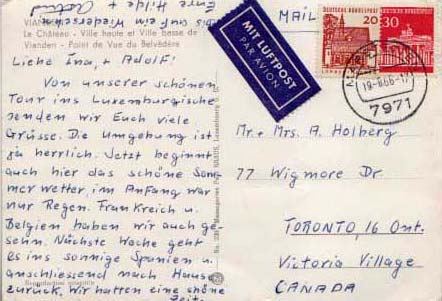 bis auf ein Wiedersehen
Eure Hilde +
VIAN
Le Château - Ville haute et Ville basse de
Vianden - Point de Vue du Belvédère
Liebe Ina, + Adolf!
Von unserer schönen
Tour ins Luxemburgische
senden wir Euch viele
Grüsse. Die Umgebung ist
ja herrlich. Jetzt beginnt
auch hier das schöne Som
mer wetter, im Anfang war
nur Regen. Frankreich u.
Belgien haben wir auch ge-
sehn. Nächste Woche geht
es ins sonnige Spanien u.
anschliessend nach Hause
zurück. Wir hatten eine schöne
Zeit.
MAIL
MIT LUFTPOST
PAR AVION
DEUTSCHE BUNDESPOST
20
30
19-8.66-17
7971
Mr. + Mrs. A. Holberg
77 Wigmore Dr.
TORONTO, 16 Ont.
Victoria Village
CANADA